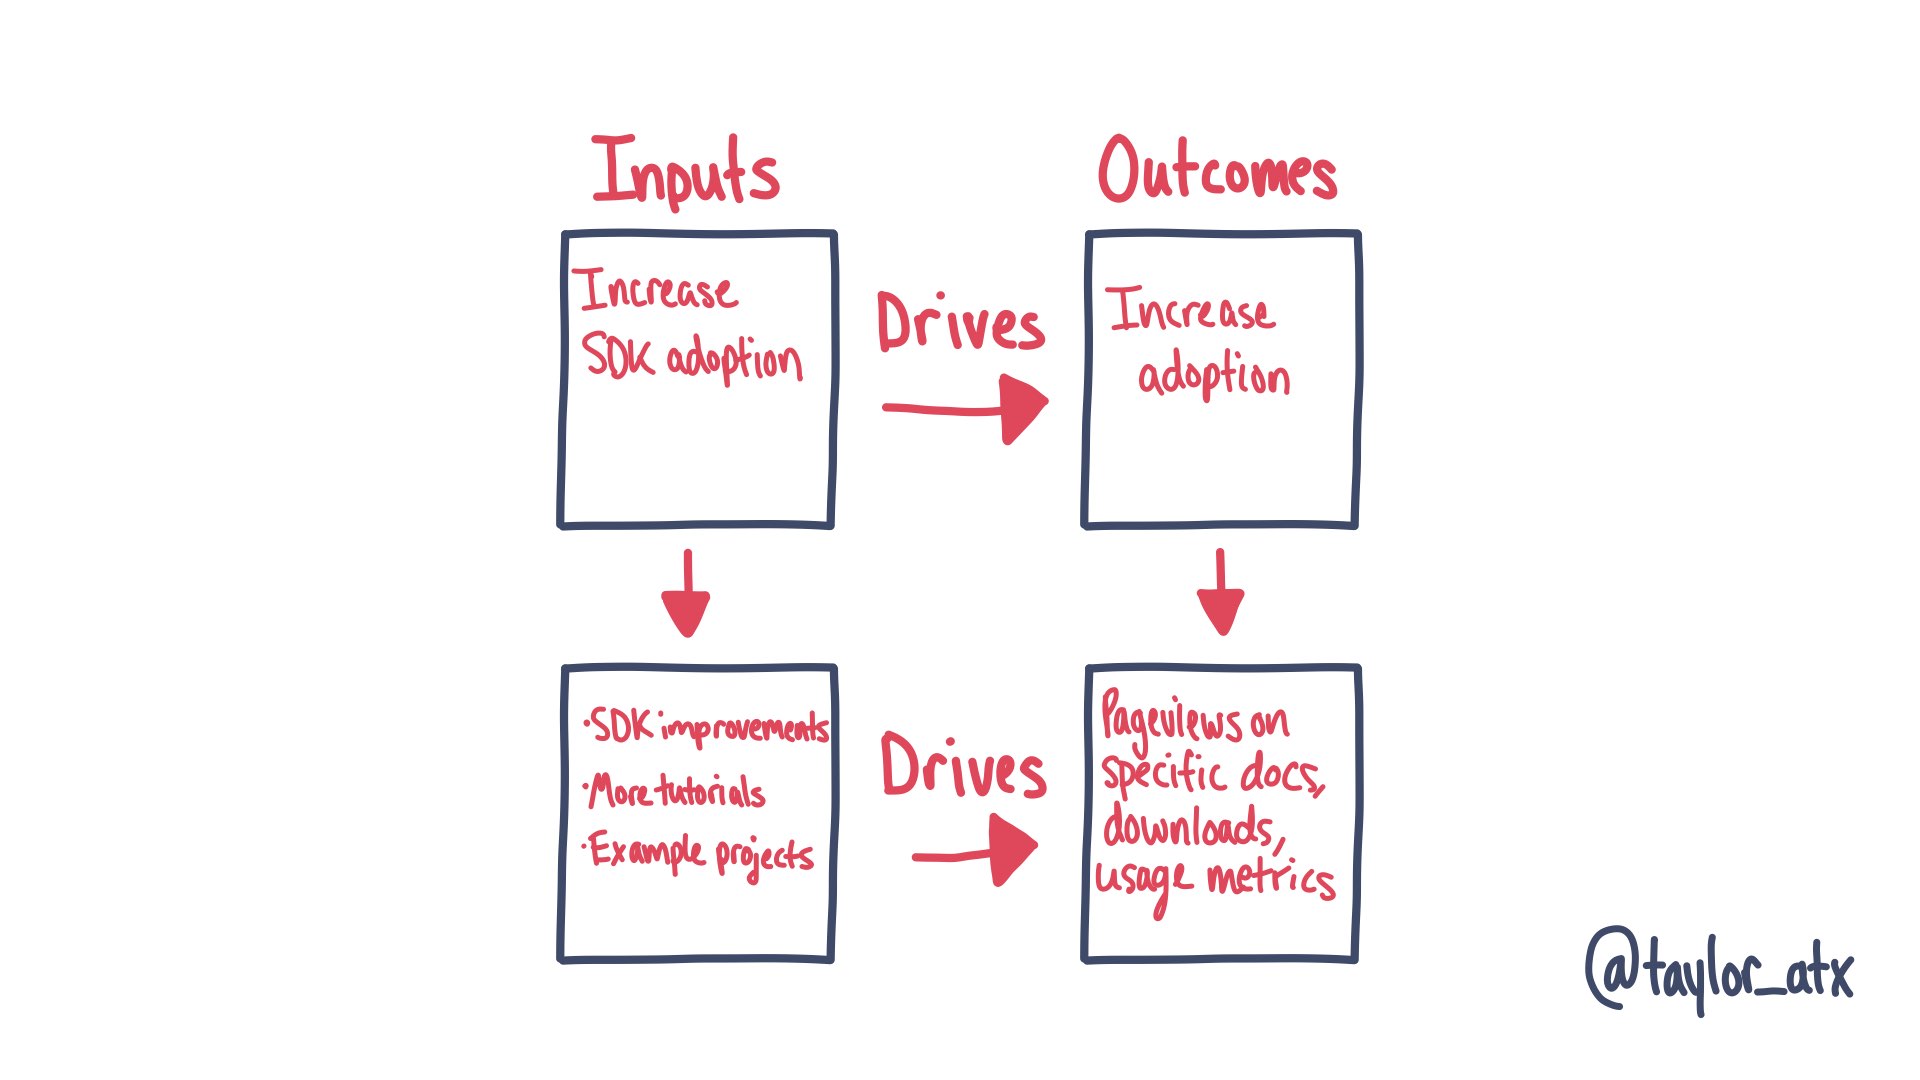 Inputs
Outcomes
Increase
SDK adoption
Drives
Increase
adoption
·SDK improvements
·More tutorials
·Example projects
Drives
Pageviews on
specific docs,
downloads,
usage metrics
@taylor_atx